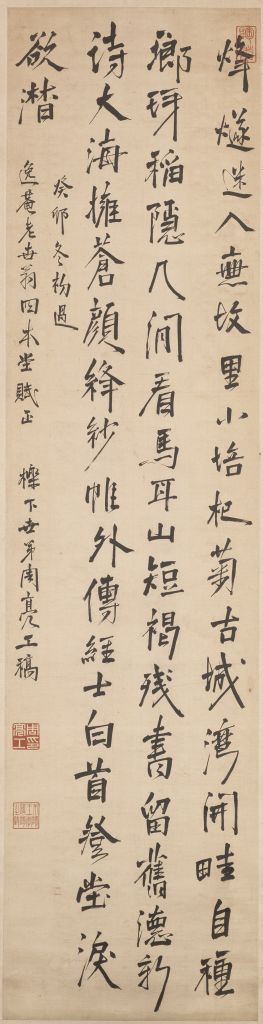 烽燧入故里小培杞菊古城灣開畦自種
瑯玡稻隱几閒看馬耳山短褐殘書留舊德新
詩大海擁蒼顔絳紗帷外傳經士白首登堂淚
欲潸
癸卯冬杪過
逸菴老世翁四本堂賦正 櫟下世弟周亮工稿